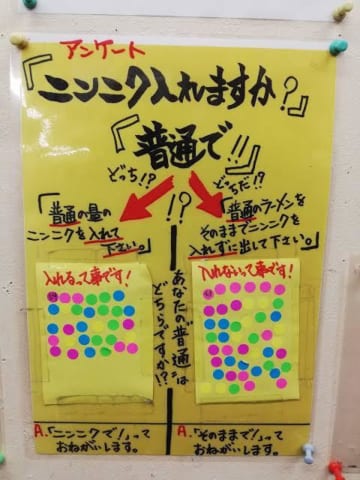 アンケート
『ニンニク入れますか?』
『普通で!!』
どっち!?
どちだ!?
!?
『普通の量の
ニンニクを入れて
下さい。』
『普通のラーメンを
そのままでニンニクを
入れずに出して下さい。』
入れるって事です!
入れないって事です!
あなたの普通は
どちらですか!?
A.「ニンニクで!」って
おねがいします。
A.「そのままで!」って
おねがいします。